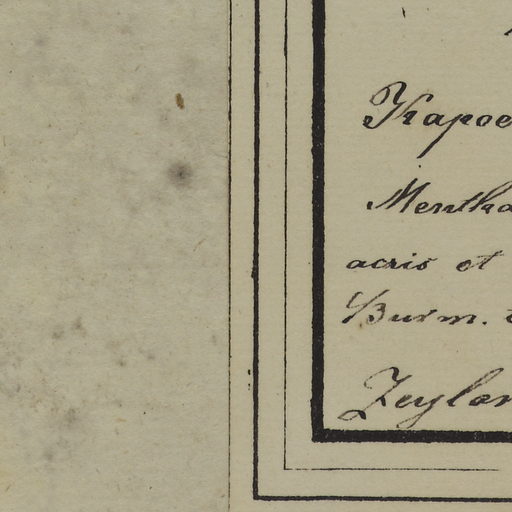 Kapoe
Mentha
acris et
Burm. t
Zeylan